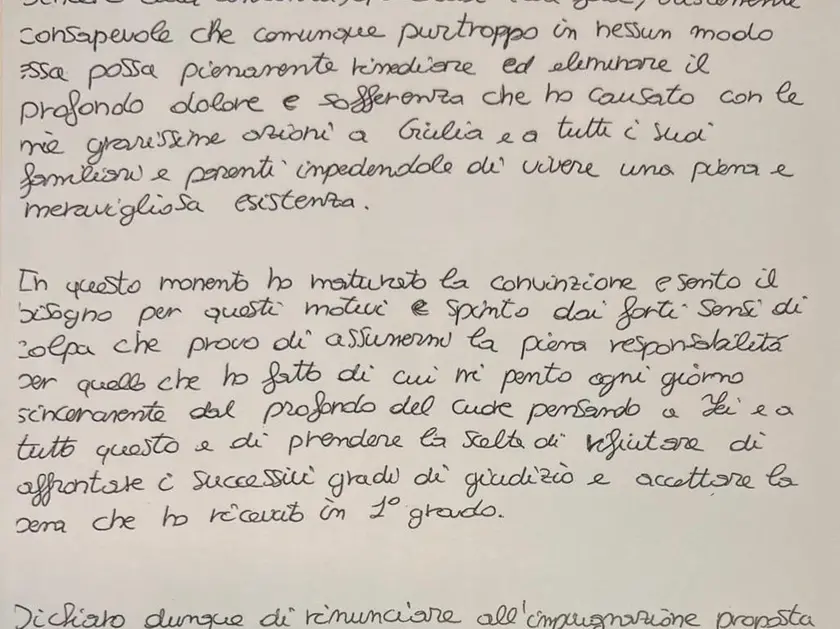 consapevole che comunque purtroppo in nessun modo
essa possa pienamente rimediare ed eliminare il
profondo dolore e sofferenza che ho causato con le
mie gravissime azioni a Giulia e a tutti i suoi
familiari e parenti impedendole di vivere una piena e
meravigliosa esistenza.
In questo momento ho maturato la convinzione e sento il
bisogno per questi motivi e spinto dai forti sensi di
colpa che provo di assumermi la piena responsabilità
per quello che ho fatto di cui mi pento ogni giorno
sinceramente dal profondo del cuore pensando a Lei e a
tutto questo e di prendere la scelta di rifiutare di
affrontare i successivi gradi di giudizio e accettare la
pena che ho ricevuto in 1° grado.
Dichiaro dunque di rinunciare all'impugnazione proposta